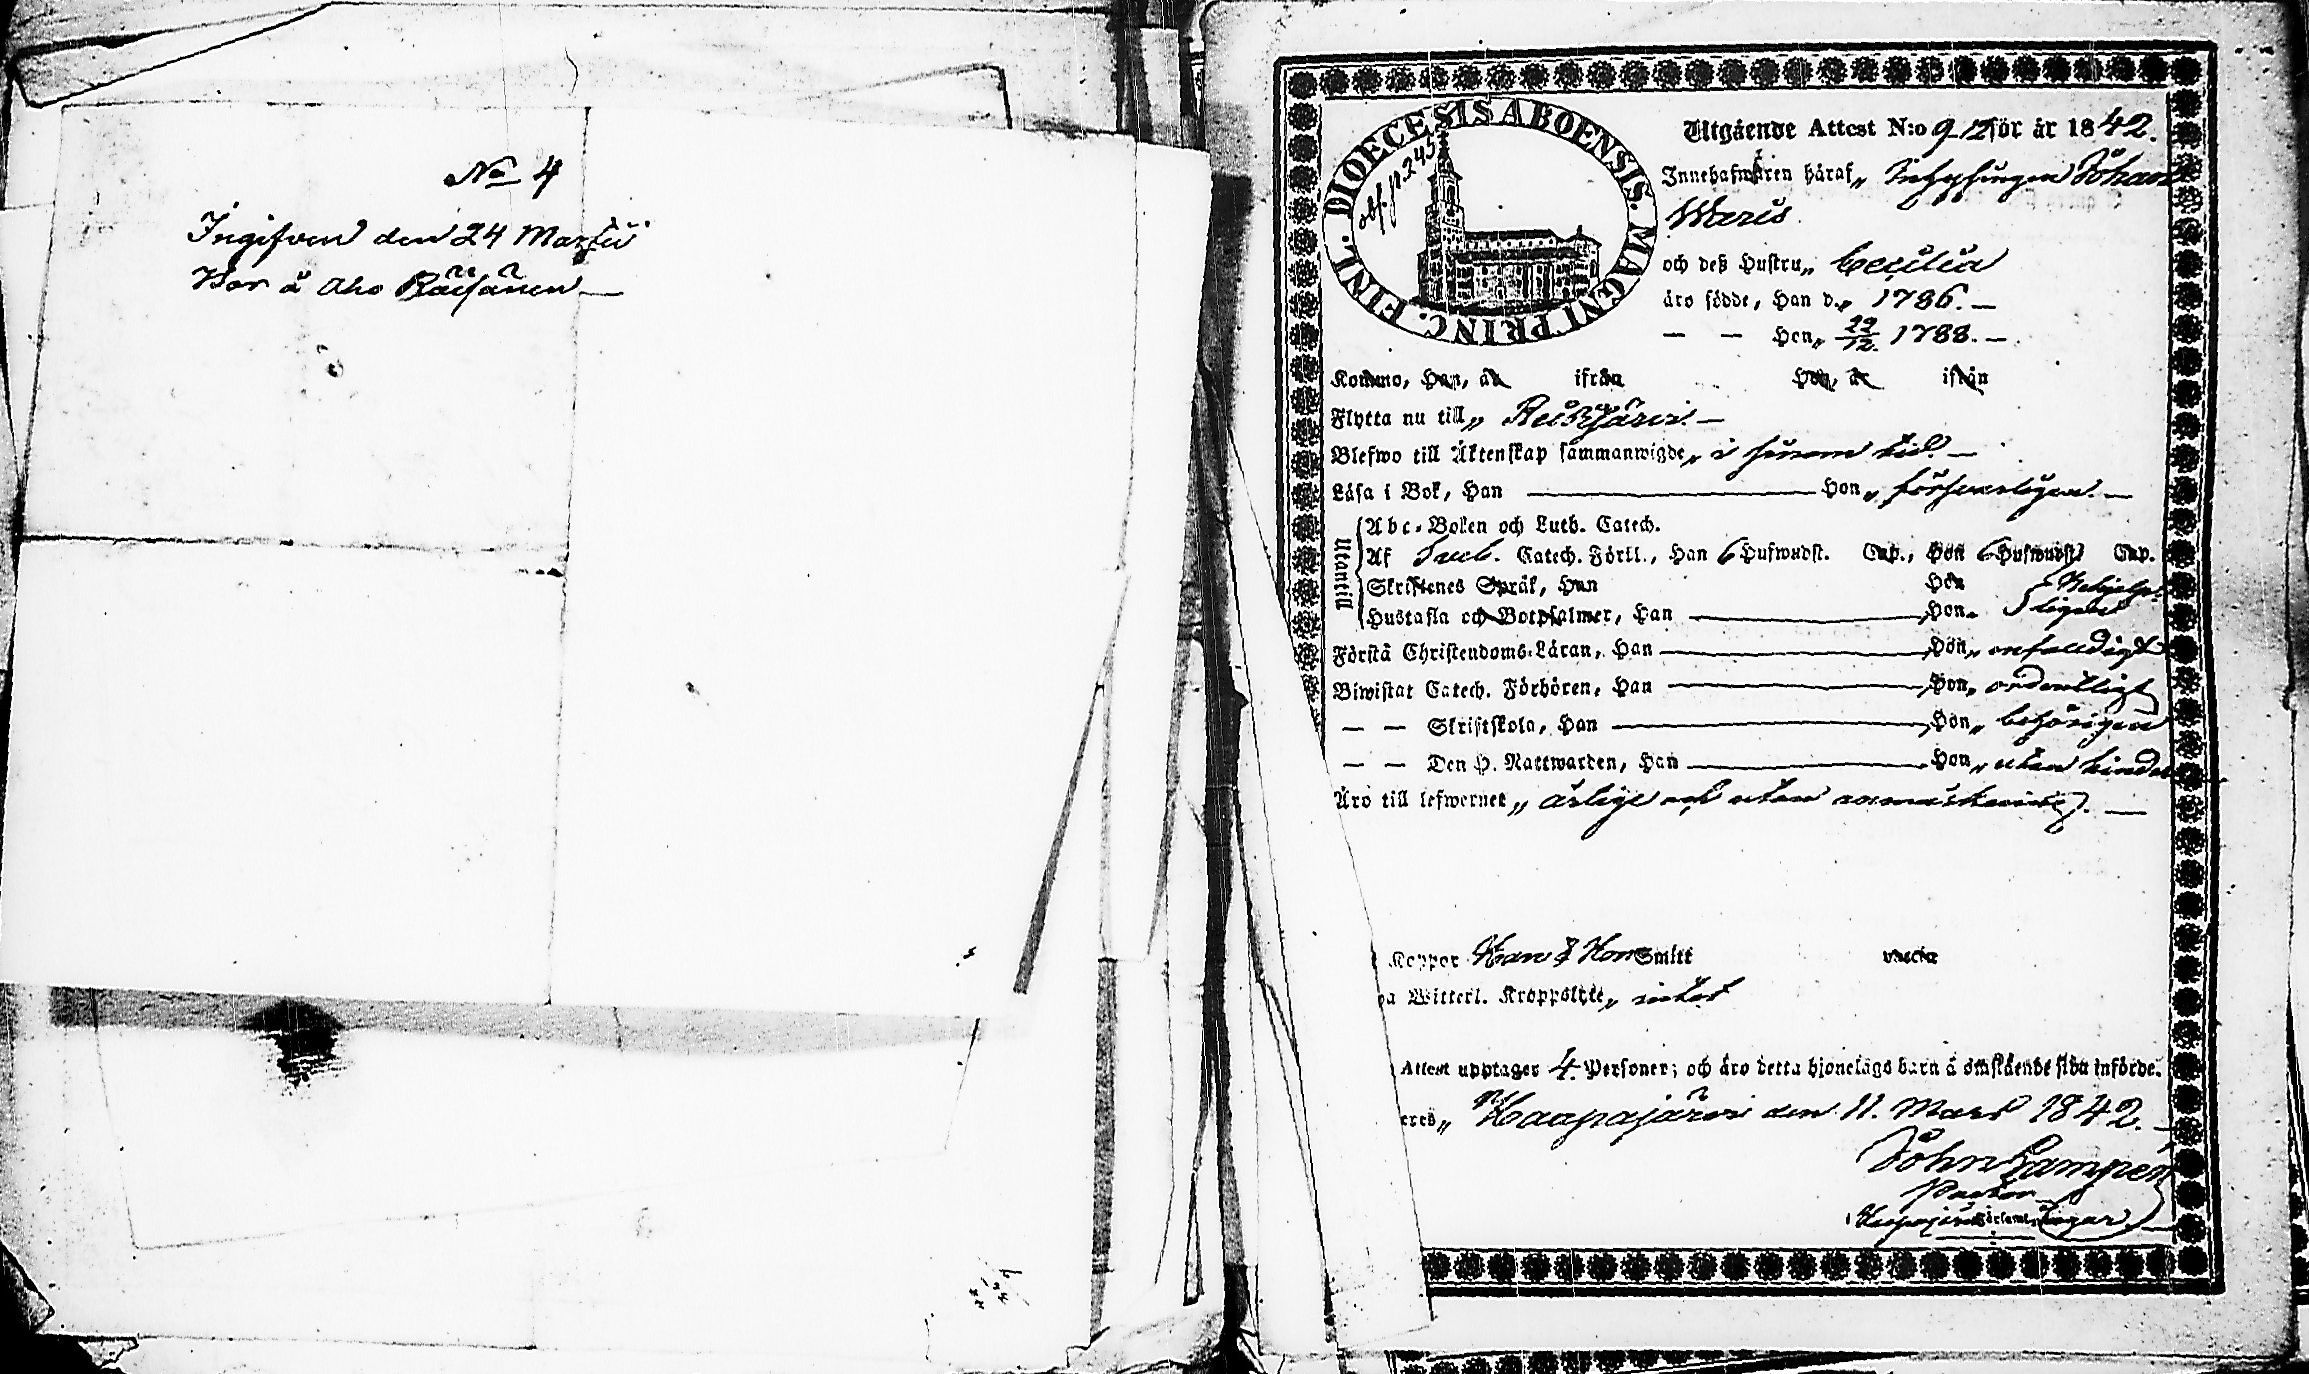 No 4
Ingifven den 24 Martii
Bor å Aho Räisänen
DIOECESIS ABOENSIS. MAGNI PRINC. FINL.
obs. p. 245
Utgående Attest N:o 9 12 för år 1842.
Innehafwaren häraf, Inhysingen Johan
Waris
och deß Hustru, Cecilia
äro födde, Han d. 1786.
— — Hon, 22/12. 1788.
Komno, Han, år ifrån Hon, år ifrån
Flytta nu till, Reisjärvi.
Blefwo till Äktenskap sammanwigde, i sinom tid.
Läsa i Bok, Han Hon, försvarligen.
Utantill
Abc-Boken och Luth. Catech.
Af Sveb. Catech. Förkl., Han 6 Hufwudst. Cap., Hon 6 Hufwudst. Cap.
Skriftenes Språk, Han Hon
Hustafla och Botpsalmer, Han Hon. Behjelpligen
Förstå Christendoms-Läran, Han Hon, enfaldigt
Biwistat Catech. Förhören, Han Hon, ordentligt
— — Skriftskola, Han Hon, behörigen
— — Den H. Nattwarden, Han Hon, utan hinder
Äro till lefwernet, ärlige och utan anmärkning.
Koppor Han & Hon Smitt vaccin
Witterl. Kroppslyte, intet
Attest upptager 4. Personer; och äro detta hjonelags barn å omstående sida införde.
Haapajärvi den 11. Mars 1842.
John Lampén
Pastor
Haapajärvi Församlingar